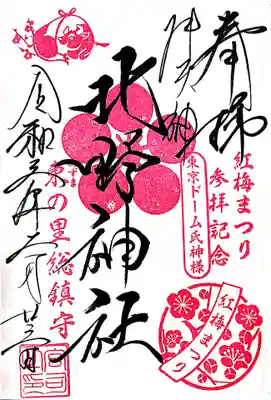 奉拝
紅梅まつり
参拝記念
牛天神
東京ドーム氏神様
北野神社
東の里総鎮守
あずま
令和三年二月廿三日
紅梅まつり